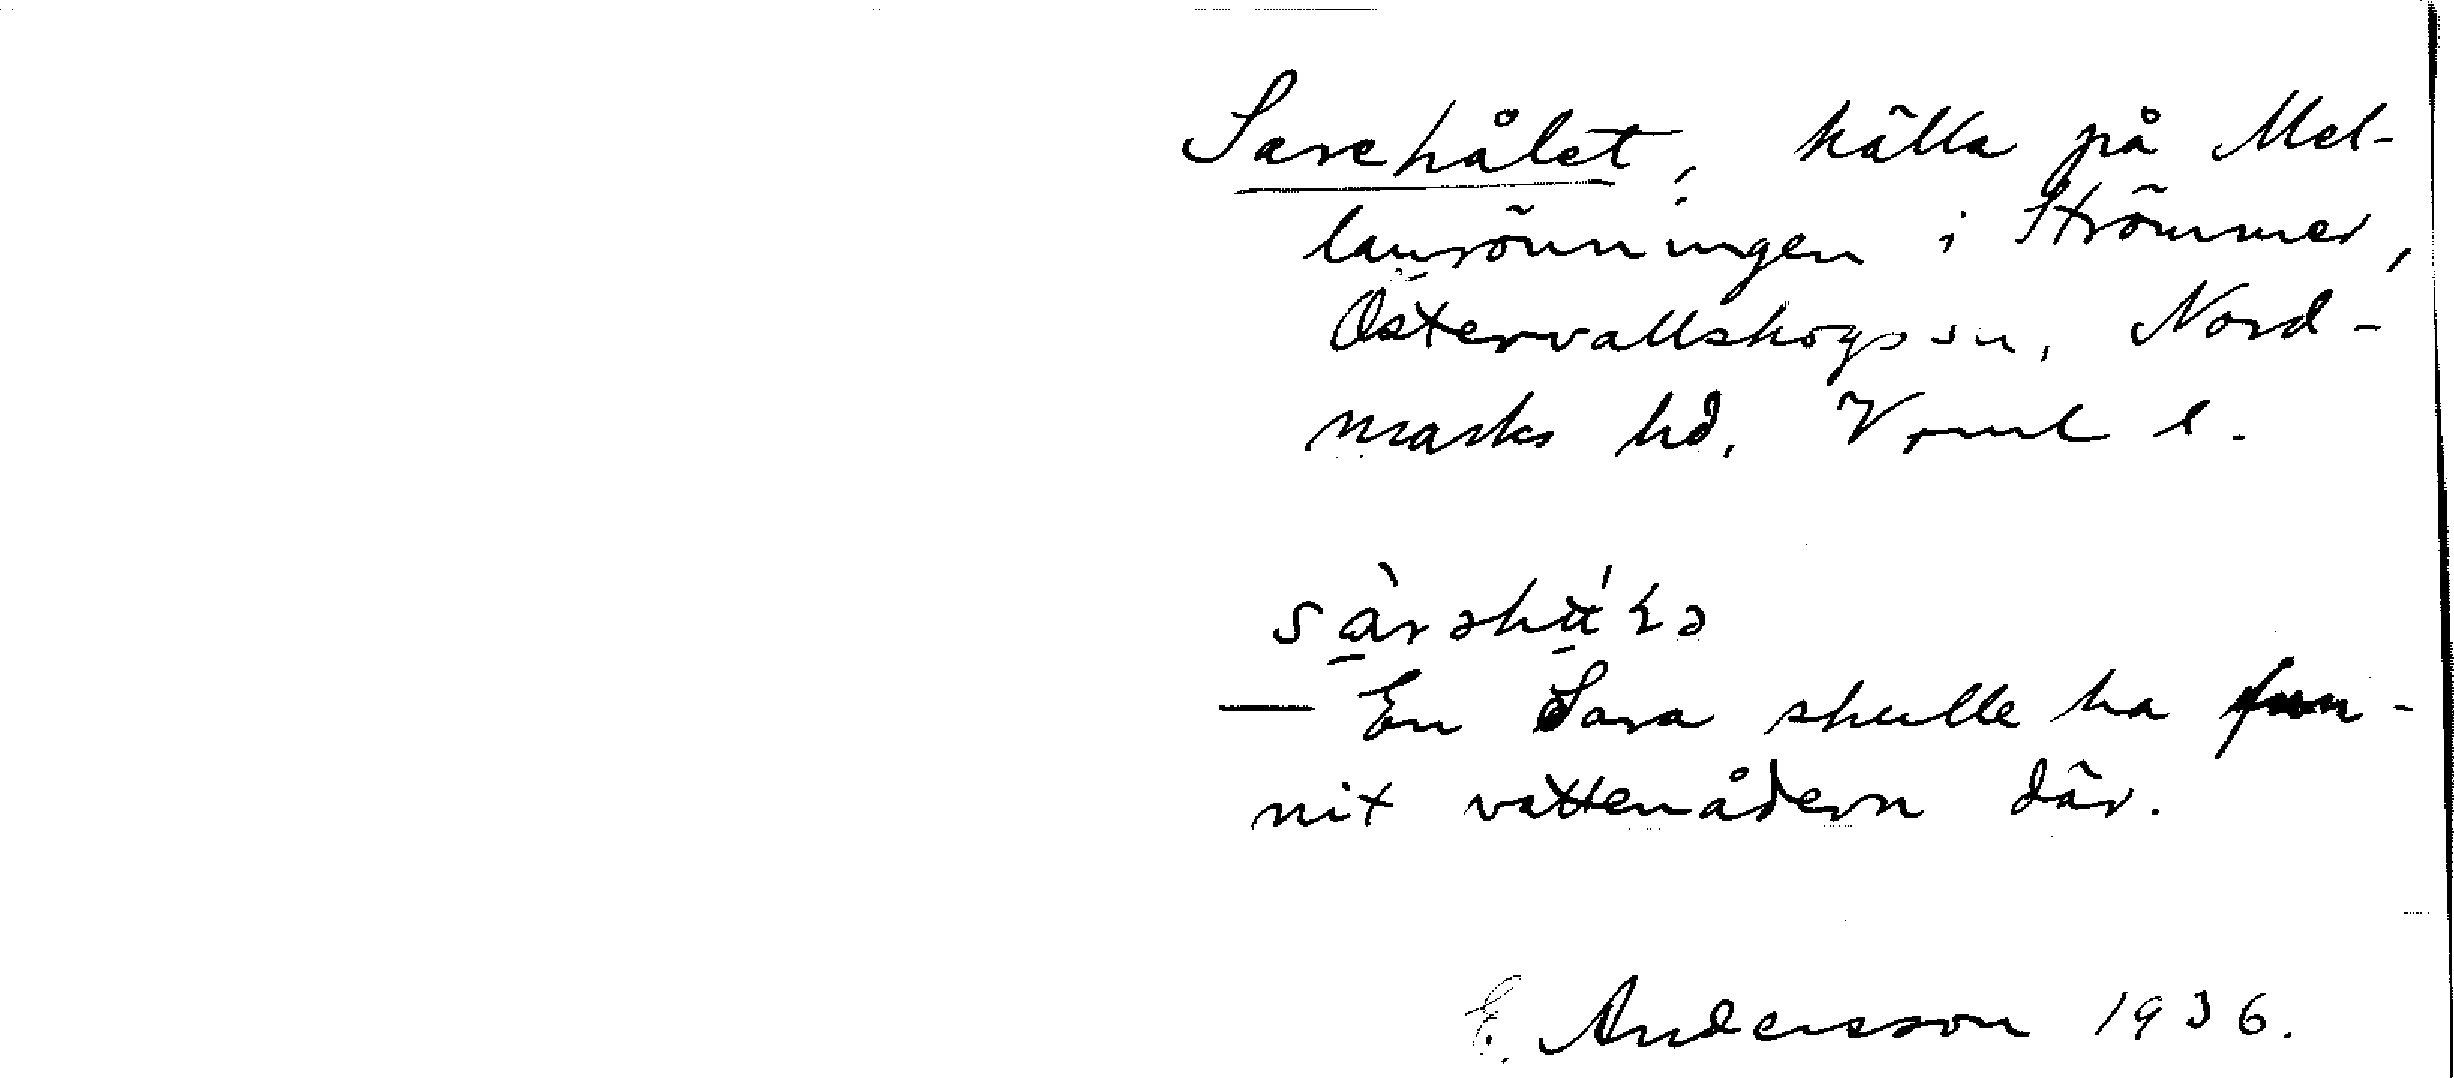 Sarehålet, källa på Mel-
lanrönningen i Strömmer,
Östervallskogs sn, Nord-
marks hd. Vrml l.
— En Sara skulle ha fun-
nit vattenådern där.
E. Andersson 1936.